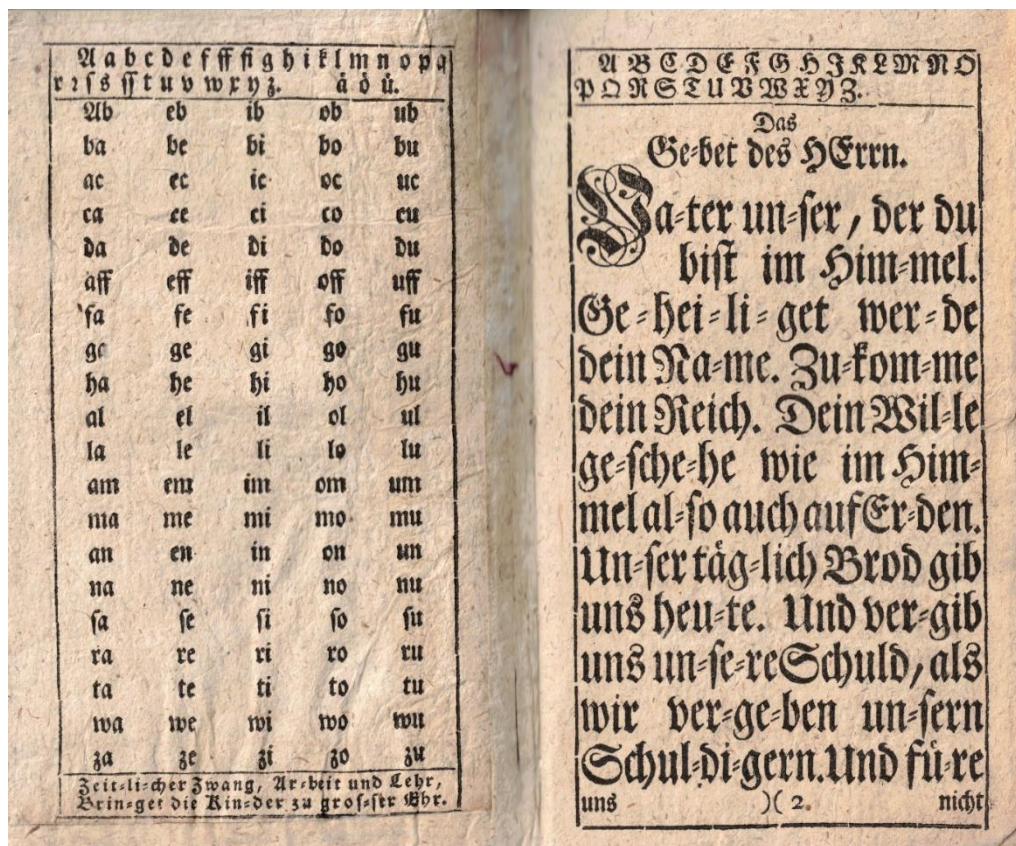 A a b c d e f ff fi g h i k l m n o p q
r ꝛ ſ s ſſ t u v w x y z. ä ö ü.
Ab eb ib ob ub
ba be bi bo bu
ac ec ic oc uc
ca ce ci co cu
da de di do du
aff eff iff off uff
fa fe fi fo fu
ga ge gi go gu
ha he hi ho hu
al el il ol ul
la le li lo lu
am em im om um
ma me mi mo mu
an en in on un
na ne ni no nu
ſa ſe ſi ſo ſu
ra re ri ro ru
ta te ti to tu
wa we wi wo wu
za ze zi zo zu
Zeit⸗li⸗cher Zwang, Ar⸗beit und Lehr,
Brin⸗get die Kin⸗der zu groſ⸗ſer Ehr.
A B C D E F G H J K L M N O
P Q R S T U V W X Y Z.
Das
Ge⸗bet des HErrn.
Va⸗ter un⸗ſer / der du
biſt im Him⸗mel.
Ge⸗hei⸗li⸗get wer⸗de
dein Na⸗me. Zu⸗kom⸗me
dein Reich. Dein Wil⸗le
ge⸗ſche⸗he wie im Him⸗
mel al⸗ſo auch auf Er⸗den.
Un⸗ſer täg⸗lich Brod gib
uns heu⸗te. Und ver⸗gib
uns un⸗ſe⸗re Schuld, als
wir ver⸗ge⸗ben un⸗ſern
Schul⸗di⸗gern. Und fü⸗re
uns )( 2. nicht